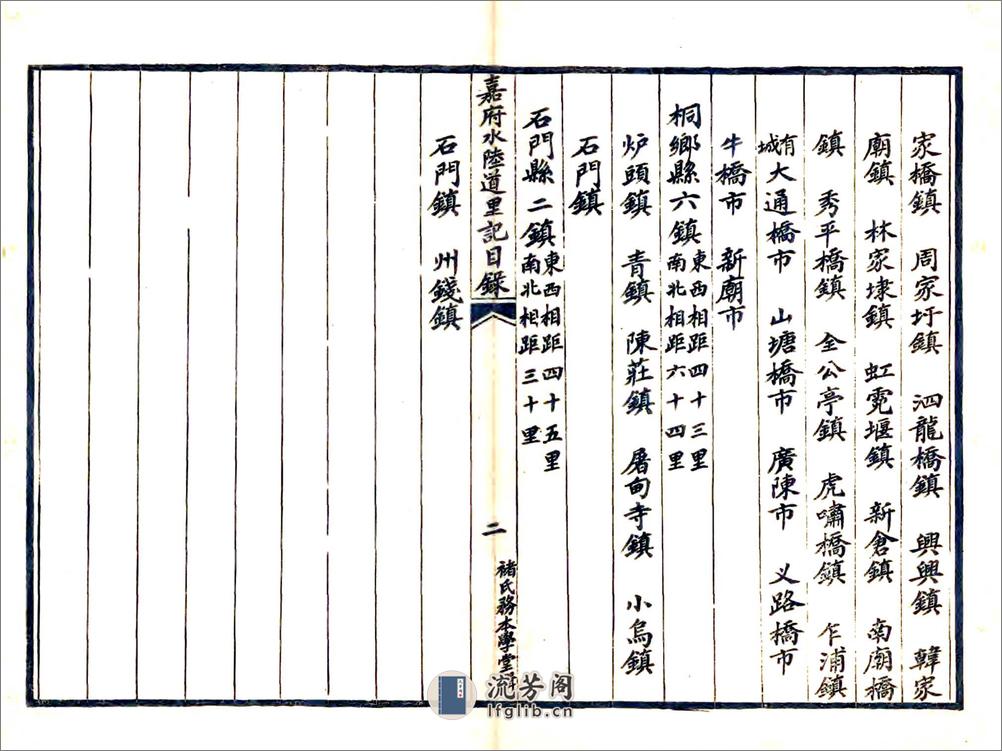 家橋鎮 周家圩鎮 泗龍橋鎮 興興鎮 韓家
廟鎮 林家埭鎮 虹霓堰鎮 新倉鎮 南廟橋
鎮 秀平橋鎮 全公亭鎮 虎嘯橋鎮 乍浦鎮
有城大通橋市 山塘橋市 廣陳市 义路橋市
牛橋市 新廟市
桐鄉縣六鎮東西相距四十三里南北相距六十四里
炉頭鎮 青鎮 陳莊鎮 屠甸寺鎮 小烏鎮
石門鎮
石門縣二鎮東西相距四十五里南北相距三十里
嘉府水陸道里記目錄 二 褚氏務本學堂
石門鎮 州錢鎮
流芳阁
lfglib.cn